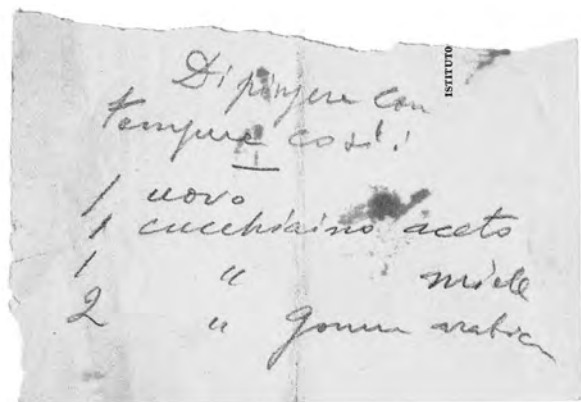 ISTITUTO
Dipingere con
tempera così:
1 uovo
1 cucchiaino aceto
1 " miele
2 " gomma arabica